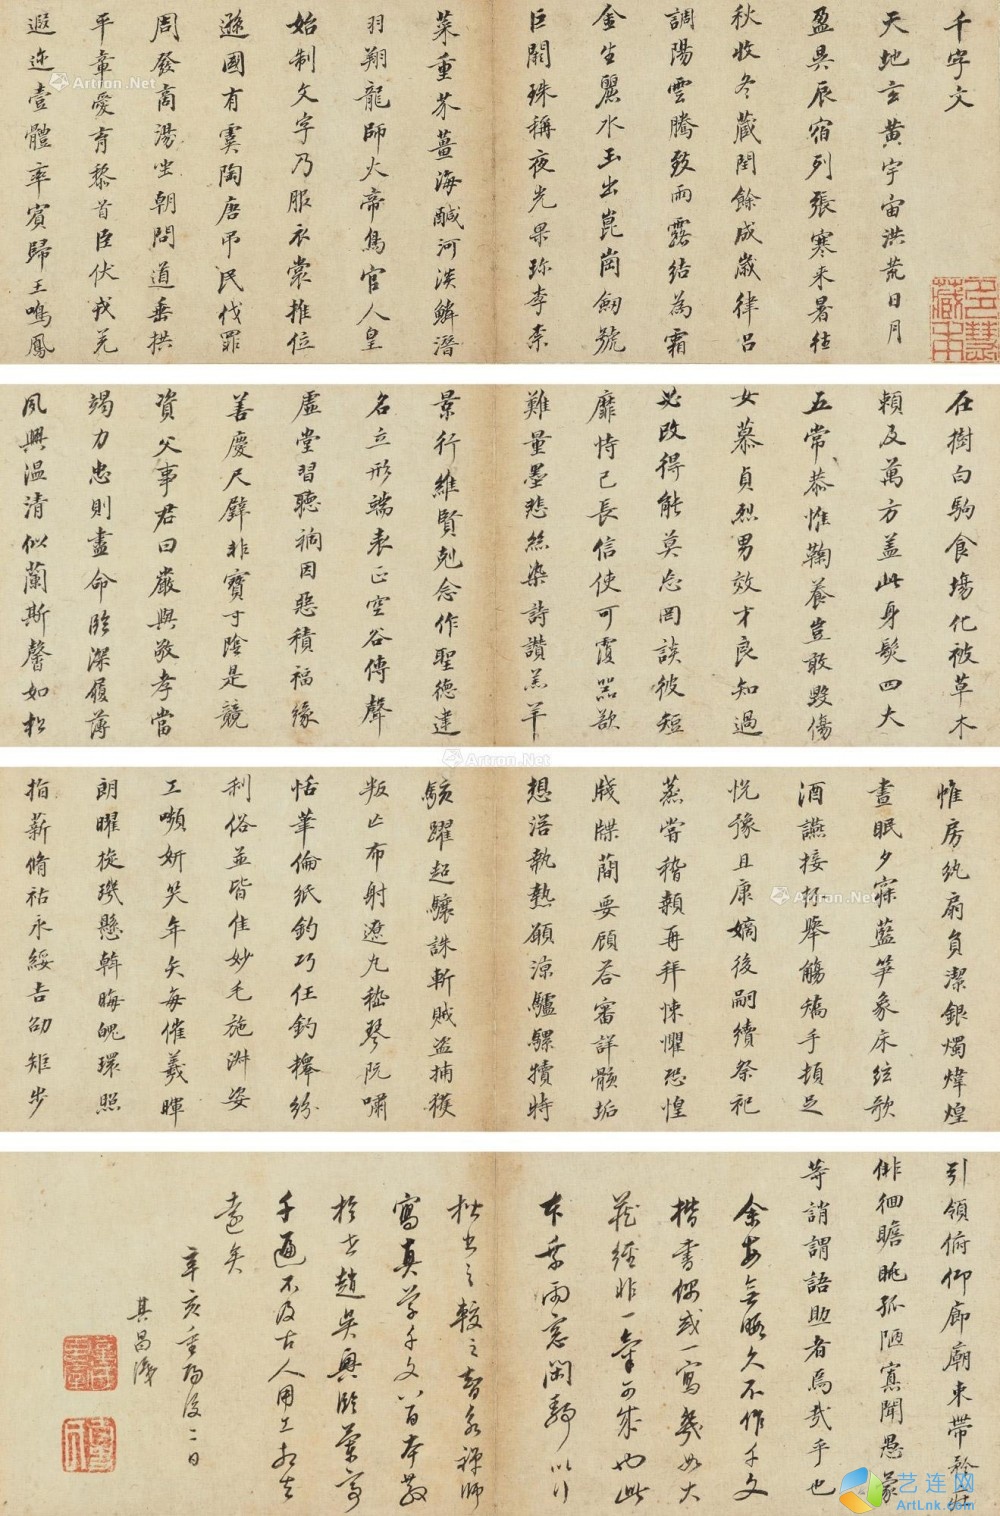 千字文
天地玄黃宇宙洪荒日月
盈昃辰宿列張寒来暑往
秋收冬藏閏餘成歲律呂
調陽雲騰致雨露結為霜
金生麗水玉出崑崗劍號
巨闕珠稱夜光果珎李柰
菜重芥薑海鹹河淡鱗潛
羽翔龍師火帝鳥官人皇
始制文字乃服衣裳推位
遜國有虞陶唐吊民伐罪
周發商湯坐朝問道垂拱
平章愛育黎首臣伏戎羌
遐迩壹體率賓歸王鳴鳳
在樹白駒食場化被草木
賴及萬方盖此身髮四大
五常恭惟鞠養豈敢毀傷
女慕貞烈男效才良知過
必改得能莫忘罔談彼短
靡恃己長信使可覆器欲
難量墨悲絲染詩讚羔羊
景行維賢剋念作聖德建
名立形端表正空谷傳聲
虛堂習聽禍因惡積福緣
善慶尺璧非寶寸陰是競
資父事君曰嚴與敬孝當
竭力忠則盡命臨深履薄
夙興温清似蘭斯馨如松
帷房紈扇負潔銀燭煒煌
晝眠夕寐藍笋象床絃歌
酒讌接杯舉觴矯手頓足
悅豫且康嫡後嗣續祭祀
蒸嘗稽顙再拜悚懼恐惶
牋牒蕳要顧荅審詳骸垢
想浴執熱願涼驢騾犢特
駭躍超驤誅斬賊盜捕穫
叛亡布射遼丸嵇琴阮嘯
恬筆倫紙鈞巧任釣釋紛
利俗並皆佳妙毛施淑姿
工嚬妍笑年矢每催羲暉
朗曜旋璣懸斡晦魄環照
指薪脩祜永綏吉劭矩步
引領俯仰廊廟束帶矜莊
俳徊瞻眺孤陋寡聞愚蒙
等誚謂語助者焉哉乎也
余安久不作千文
楷書偶或一寫幾如大
藏經非一筆可成也此
本乘雨窓閑靜以行
楷書之較之智永禪師
寫真草千文八百本散
於世趙吳興臨藁寫
千遍不及古人用工相去
遠矣
辛亥重陽後二日
其昌識
Artron.Net
Artron.Net
Artron.Net
艺连网
ArtLnk.com